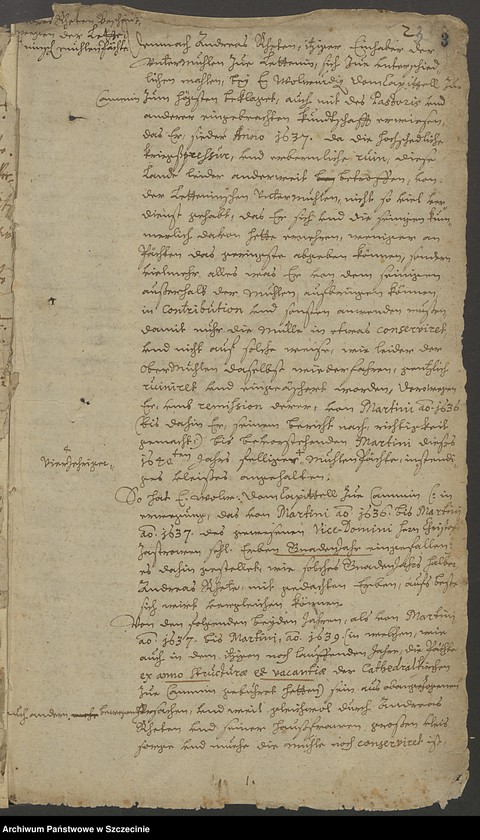 Andreas Rheten
wegen der Letteni-
2 3
Demnach Andreas Rheten, itziger Einhaber der
Untermühlen Zue Lettenin, sich Zue unterschied-
lichen mahlen, bey E. Wolwürdig. DomCapittell Zue
Cammin Zum högsten beklaget, auch mit des Pastoris und
anderer eingebrachten Kundtschafft erwiesen,
das Er, sieder Anno 1637. da die hochschedliche
Kriegspressur, und erbermliche ruin, diese
Lande leider anderweit betroffen, von
der Letteninschen Untermühlen, nicht so viel ver-
dienst gehabt, das Er sich und die seinigen küm-
merlich davon hette ernehren, weiniger an
Pächten das geringste abgeben können, sondern
vielmehr alles was Er von dem seinigen
außerhalb der Mühlen, aufbringen können
in Contribution und sonsten anwenden müssen
damit nuhr die Mülle in etwas conserviret
und nicht auf solche weise, wie leider der
Obermühlen daselbst wiederfahren, gentzlich
ruiniret und eingeäschert worden, Derowegen
Er, umb remission derer, von Martini ao. 1636
(bis dahin Er, seinem bericht nach, richtigkeit
gemacht) bis bevorstehenden Martini dieses
1640ten Jahres felligen MühlenPächte, instendi-
ges vleißes angehalten;
4
Vier Jehriger
So hat E. Wolw. DomCapittell Zue Cammin (: in
erwegung, das von Martini ao. 1636. bis Martini
ao. 1637. des gewesenen Vice-Domini hern
Erben Gnadenjahr eingefallen
es dahin gestellet, wie solches Gnadenjahrs halber
Andreas Rhete, mit gedachten Erben, aufs beste
sich wirdt vergleichen können.
Von den folgenden beyden Jahren, als von Martini
ao. 1637. bis Martini, ao. 1639. (in welchen, wie
auch in dem itzigen noch lauffenden Jahre, die Pächte
ex anno structuræ et vacantiæ der Cathedralkirchen
Zue Cammin gebühret hetten) sein aus obangezogenen
auch andern
Uhrsachen, und weil gleichwol durch Andreas
Rheten und seiner Haußfrauen, großen vleis
sorge und mühe die Mühle noch conserviret ist
1.
Archiwum Państwowe w Szczecinie